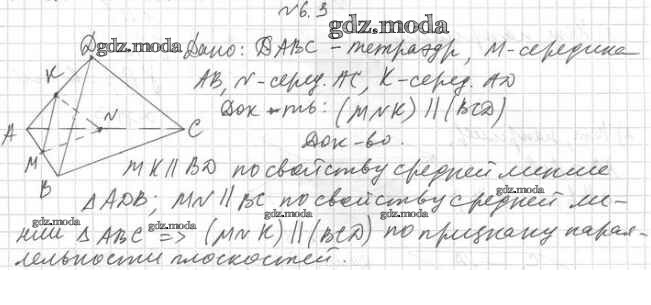 №6.3
gdz.moda
gdz.moda
Дано: DABC - тетраэдр, M-середина
AB, N-серед. AC, K-серед. AD
Док-ть: (MNK) || (BCD)
Док-во.
MK || BD по свойству средней линии
gdz.moda
△ADB; MN || BC по свойству средней ли-
gdz.moda gdz.moda gdz.moda gdz.moda
нии △ABC => (MNK) || (BCD) по признаку парал-
лельности плоскостей.
D
K
N
A
C
M
B